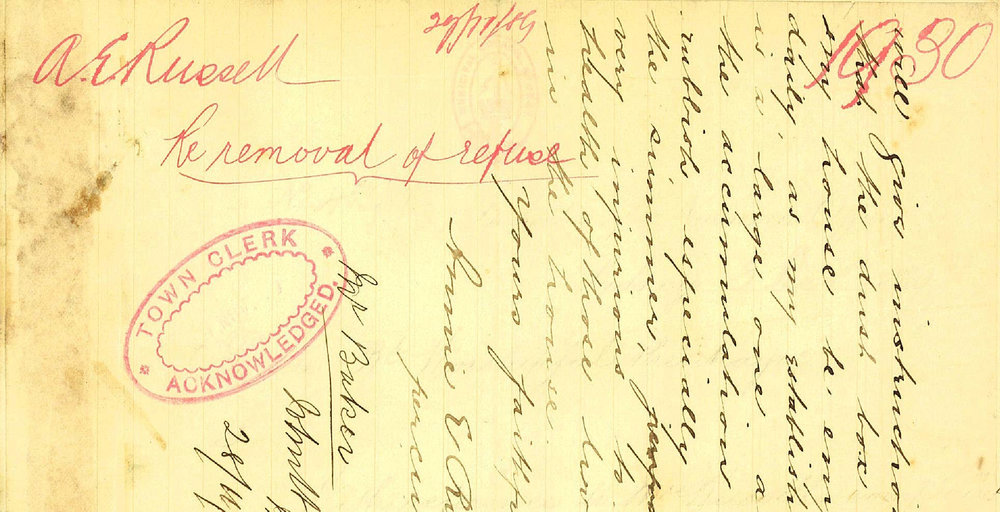 A. E Russell
Re removal of refuse
1930
TOWN CLERK
ACKNOWLEDGED.
will give instructio
that the dust box
my house be em
daily, as my establish
is a large one a
the accumulation
rubbish, especially
the summer,
very injurious to
health of those liv
in the house.
Yours faithf
Annie E Ru
Mr Baker
28/